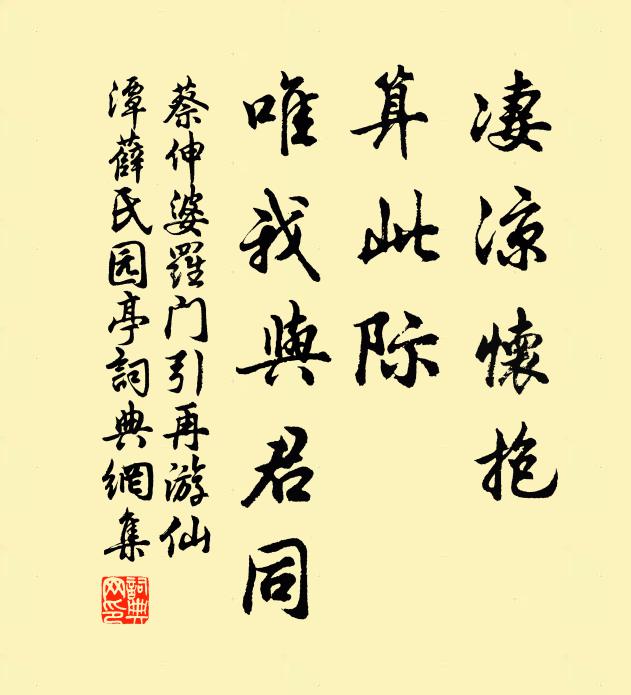 淒涼懷抱
算此际
唯我與君同
蔡伸婆羅门引再游仙
潭薛民园亭詞典網集
詞典
网印